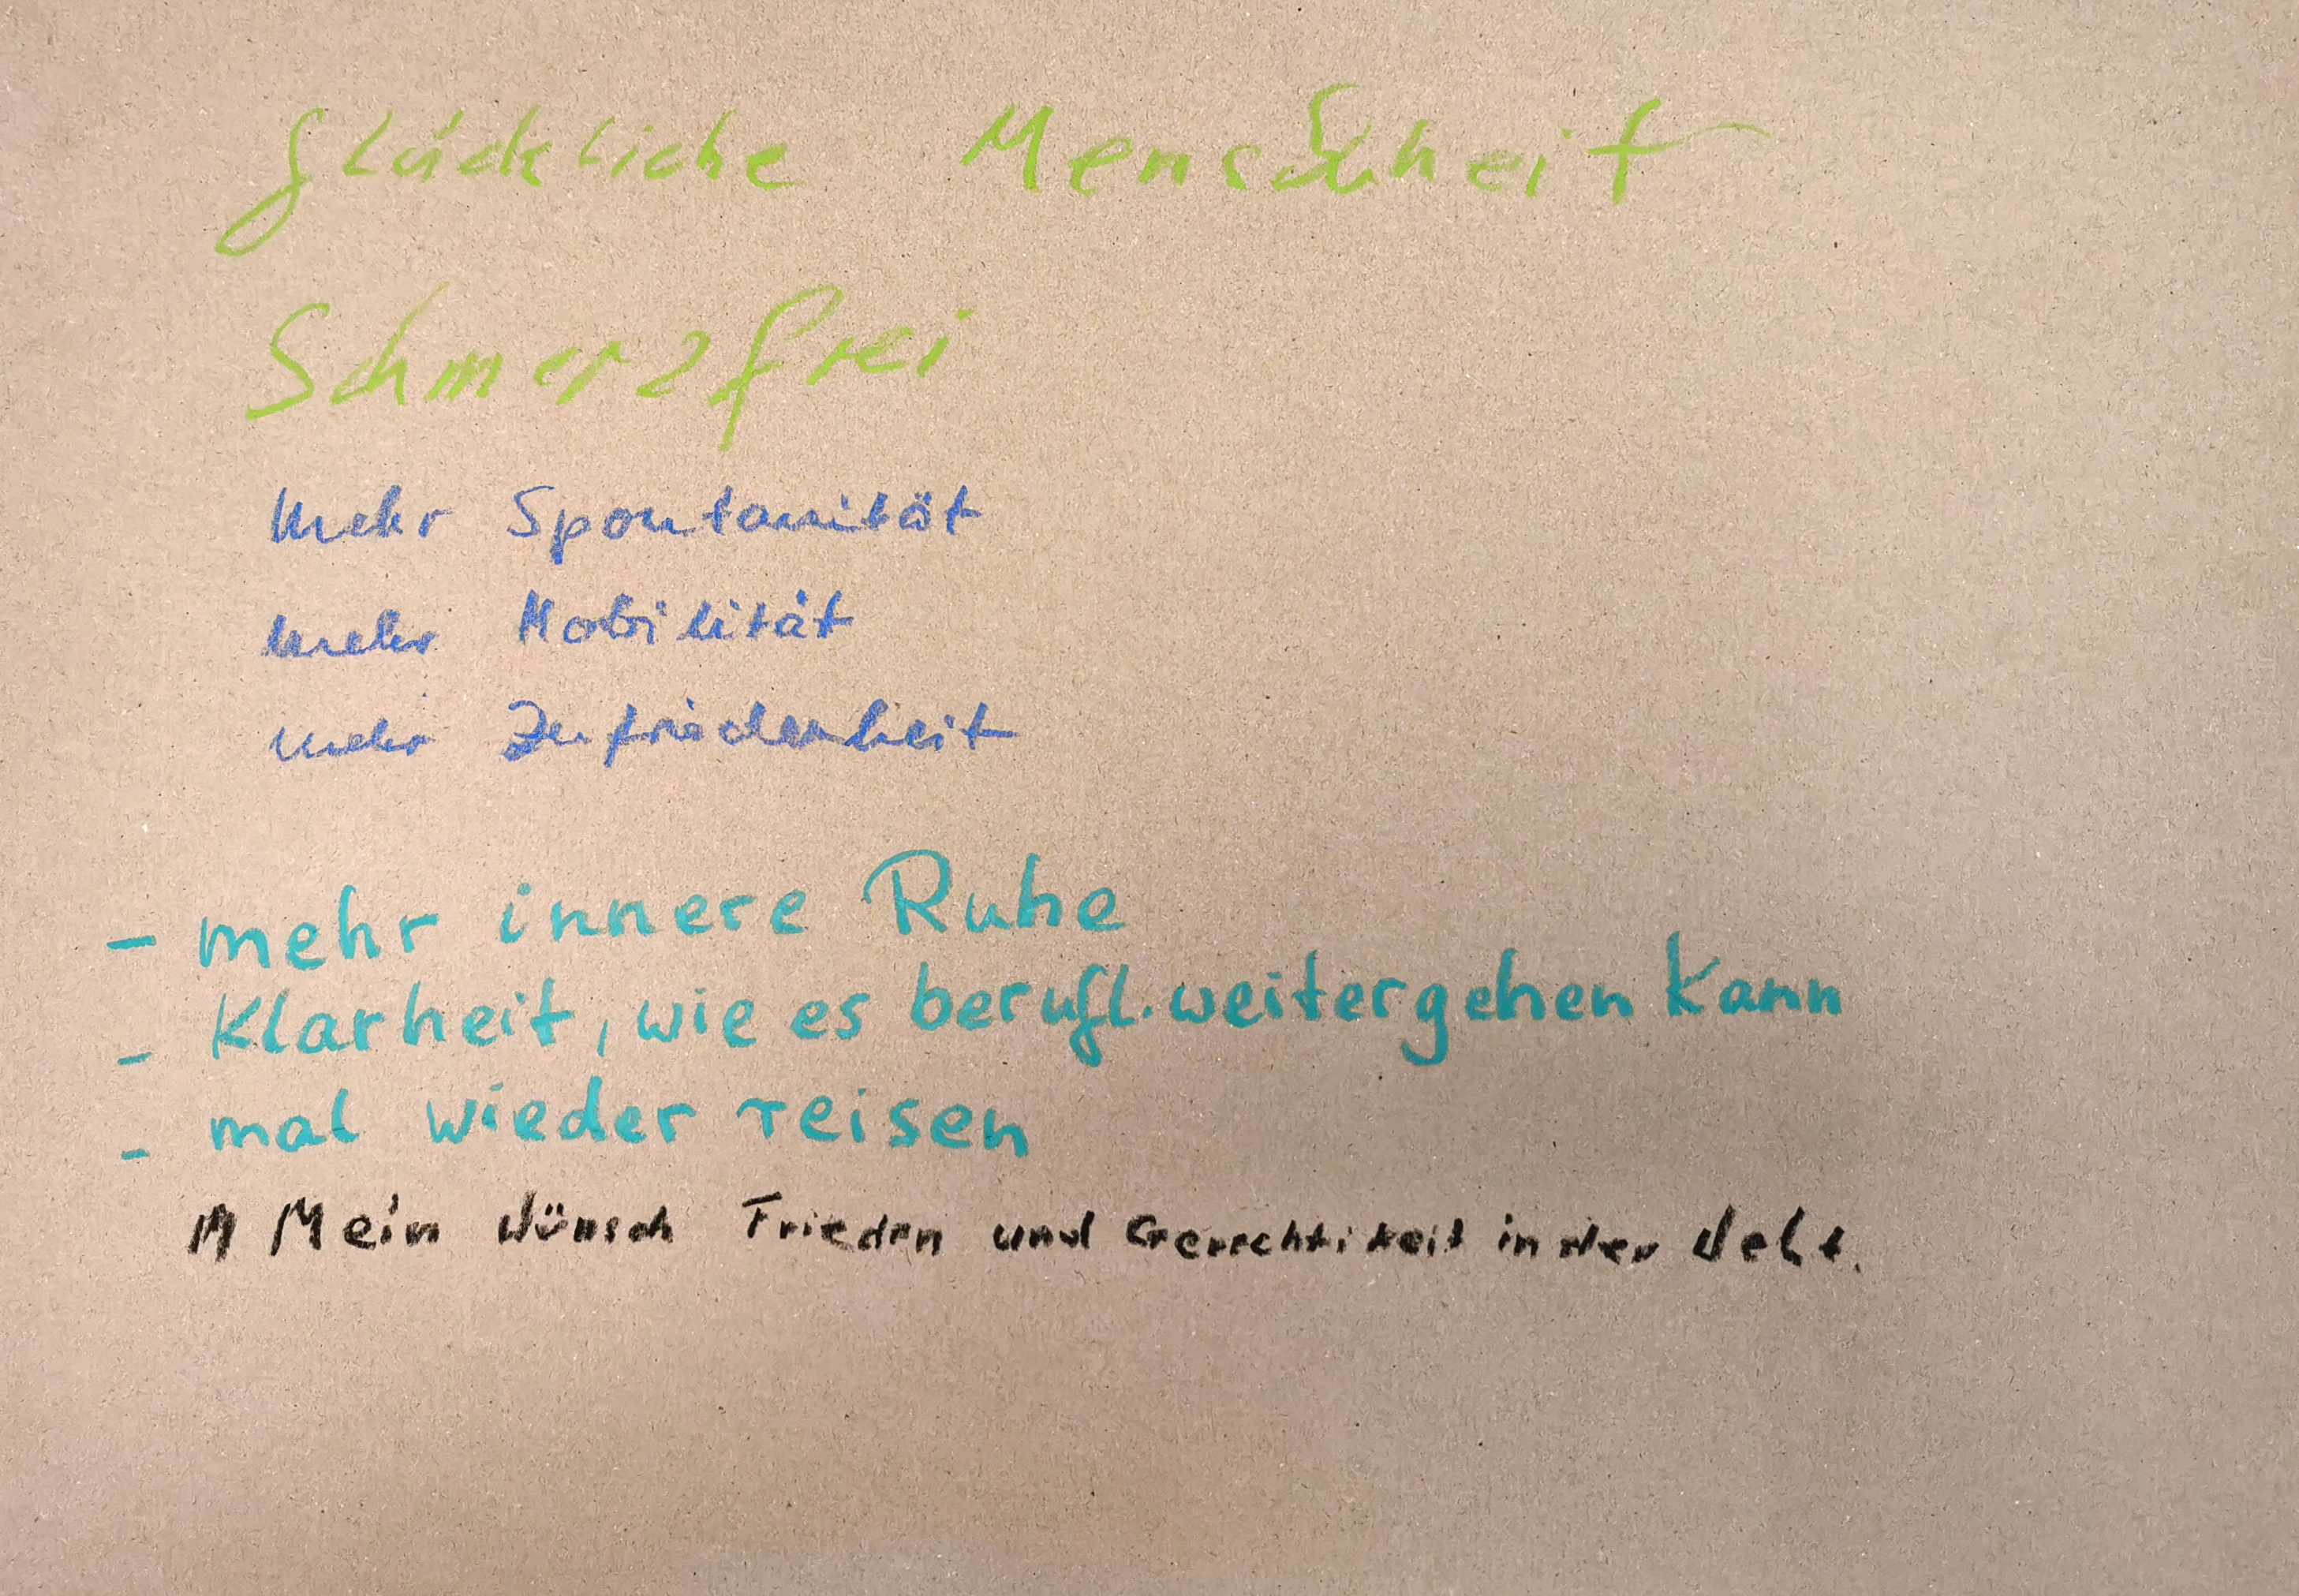 glückliche Menschheit
Schmerzfrei
mehr Spontanität
mehr Mobilität
mehr Zufriedenheit
- mehr innere Ruhe
- Klarheit, wie es berufl. weitergehen kann
- mal wieder reisen
M Mein Wünsch Frieden und Gerechtikeit in der Welt.